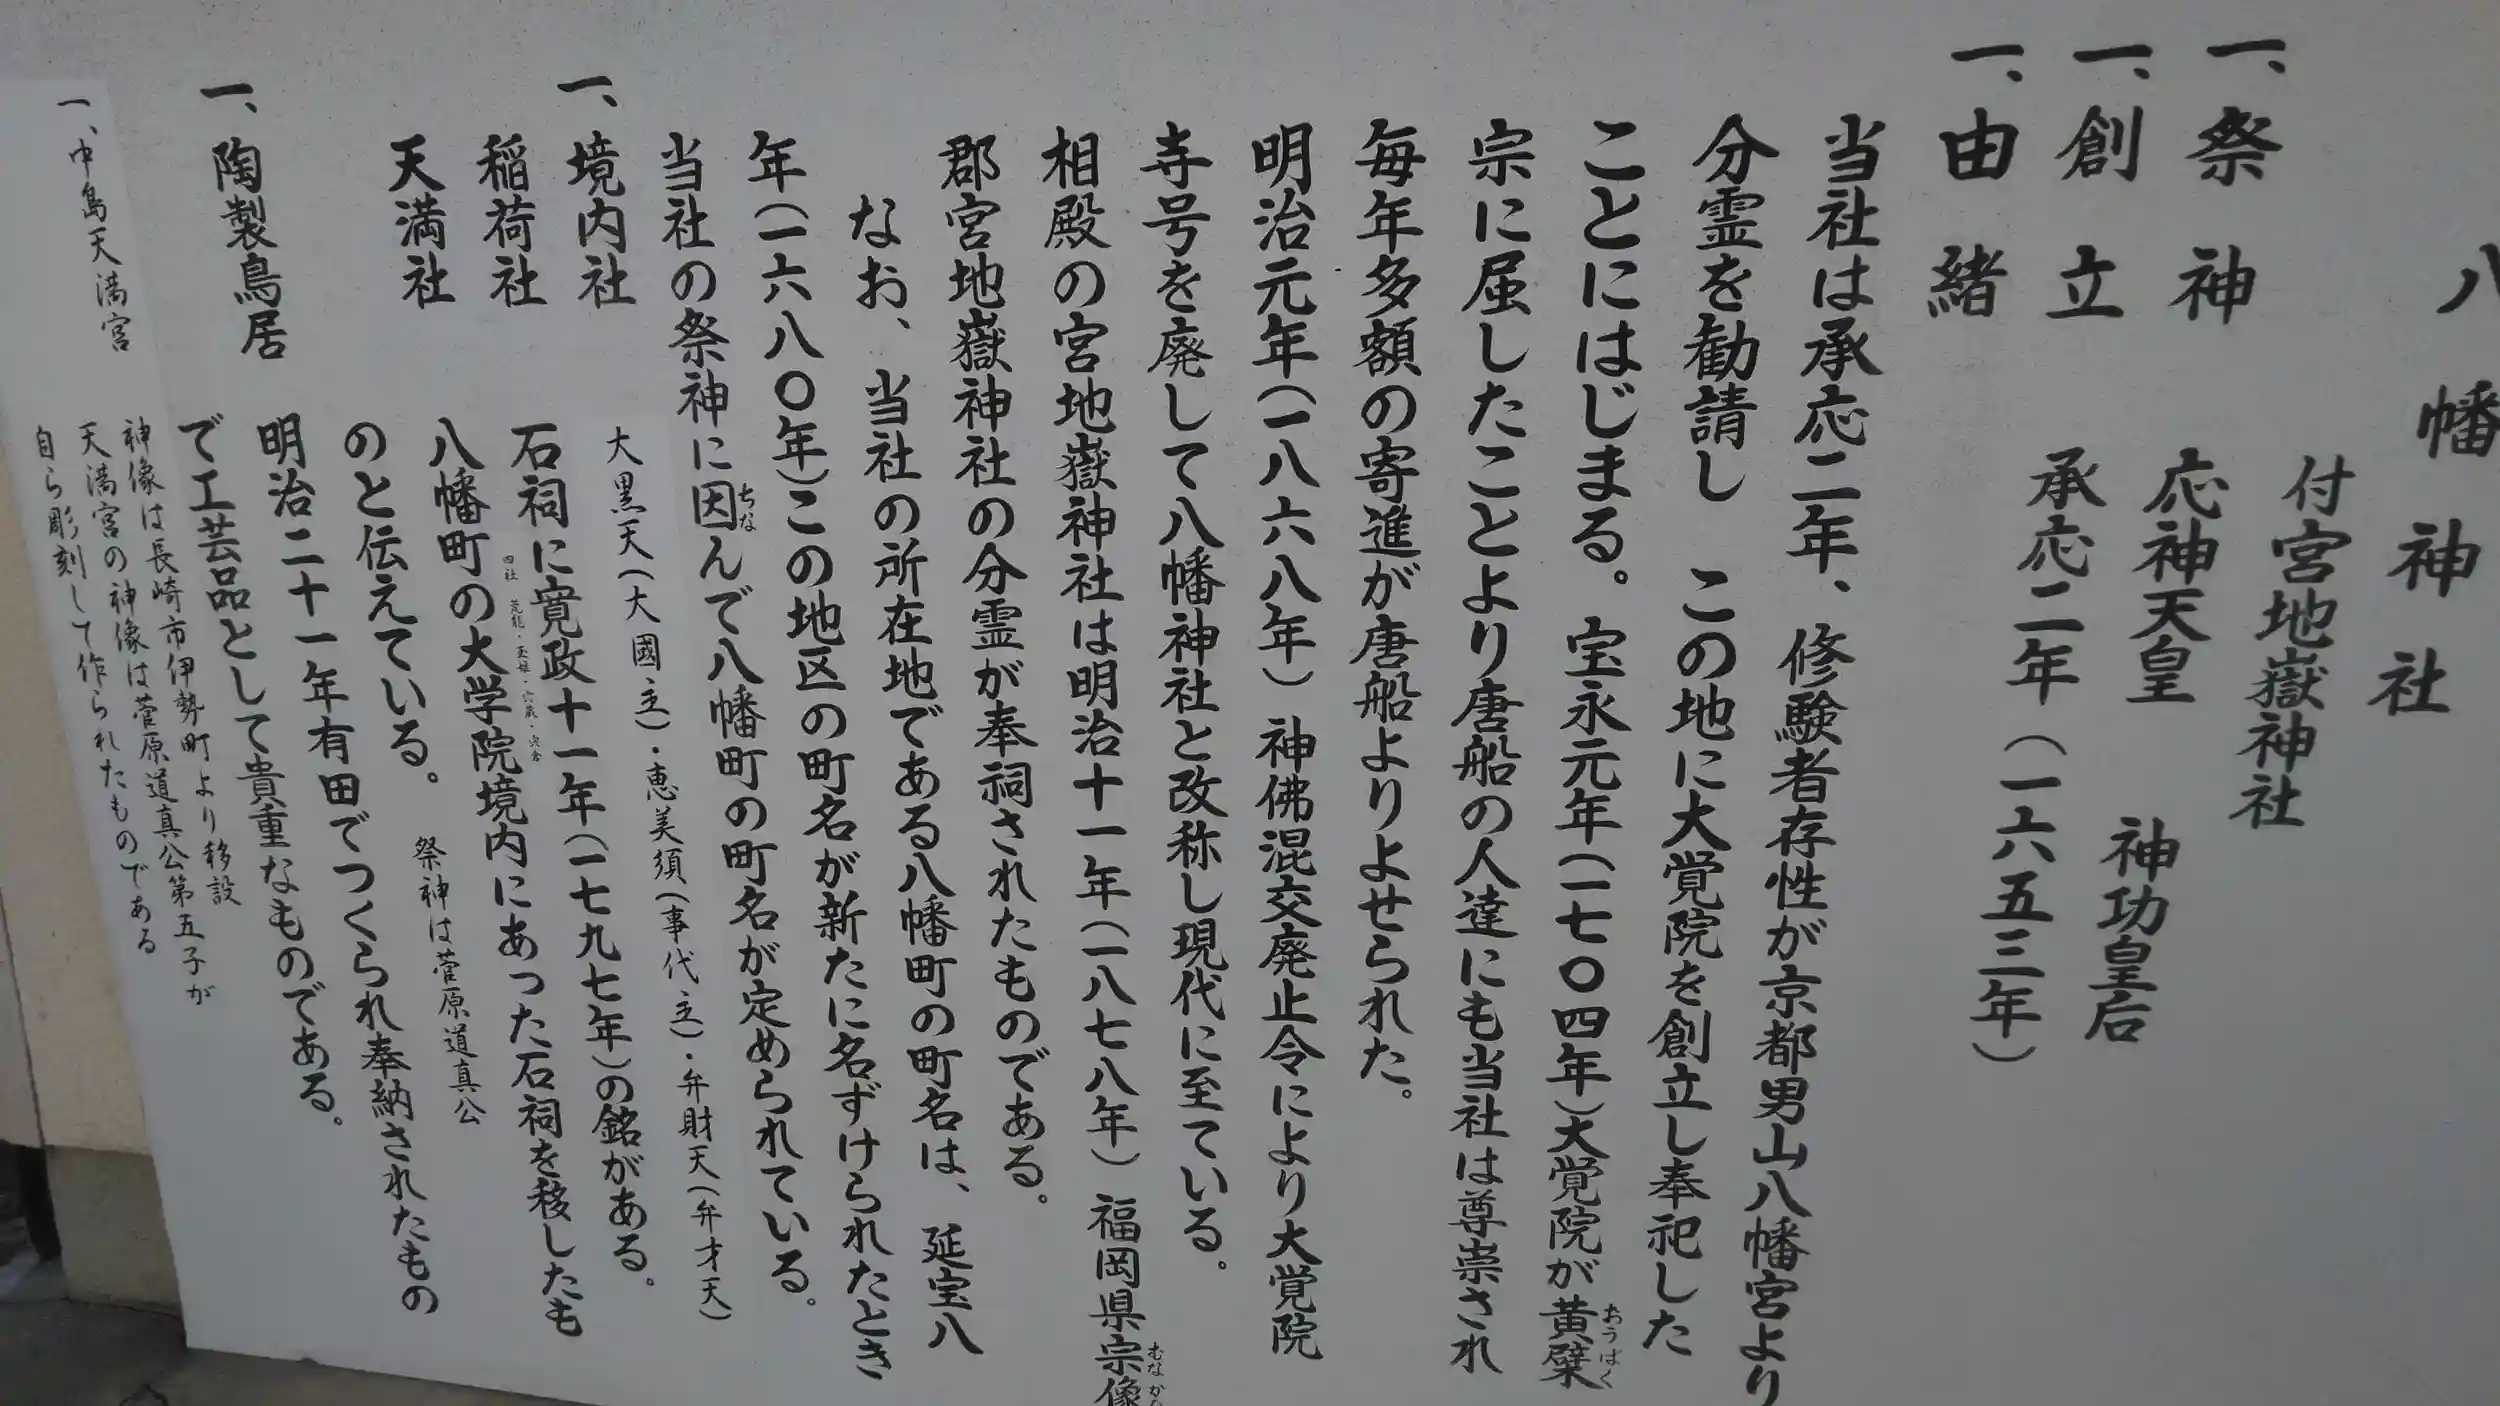 八幡神社
付宮地嶽神社
一、祭神　応神天皇　神功皇后
一、創立　承応二年（一六五三年）
一、由緒
当社は承応二年、修験者存性が京都男山八幡宮より
分霊を勧請し　この地に大覚院を創立し奉祀した
ことにはじまる。宝永元年（一七〇四年）大覚院が黄檗
おうばく
宗に屈したことより唐船の人達にも当社は尊崇され
毎年多額の寄進が唐船よりよせられた。
明治元年（一八六八年）神佛混交廃止令により大覚院
寺号を廃して八幡神社と改称し現代に至ている。
相殿の宮地嶽神社は明治十一年（一八七八年）福岡県宗像
むなかた
郡宮地嶽神社の分霊が奉祠されたものである。
なお、当社の所在地である八幡町の町名は、延宝八
年（一六八〇年）この地区の町名が新たに名ずけられたとき
当社の祭神に因んで八幡町の町名が定められている。
ちな
一、境内社　大黒天（大國主）・恵美須（事代主）・弁財天（弁才天）
稲荷社　石祠に寛政十一年（一七九七年）の銘がある。
天満社　八幡町の大学院境内にあった石祠を移したも
のと伝えている。　祭神は菅原道真公
一、陶製鳥居　明治二十一年有田でつくられ奉納されたもの
で工芸品として貴重なものである。
一、中島天満宮　神像は長崎市伊勢町より移設
天満宮の神像は菅原道真公第五子が
自ら彫刻して作られたものである